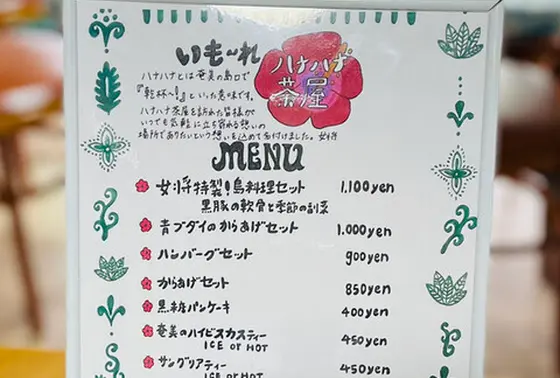 いも〜れ
ハナハナ
茶屋
ハナハナとは奄美の島口で
『乾杯〜!』といった意味です。
ハナハナ茶屋を訪れた皆様が
いつでも気軽に立ち寄れる憩いの
場所でありたいという想いを込めて名付けました。女将
MENU
女将特製!島料理セット 1,100yen
黒豚の軟骨と季節の副菜
青ブダイのからあげセット 1,000yen
ハンバーグセット 900yen
からあげセット 850yen
黒糖パンケーキ 400yen
奄美のハイビスカスティー 450yen
ICE or HOT
サングリアティー 450yen
ICE or HOT